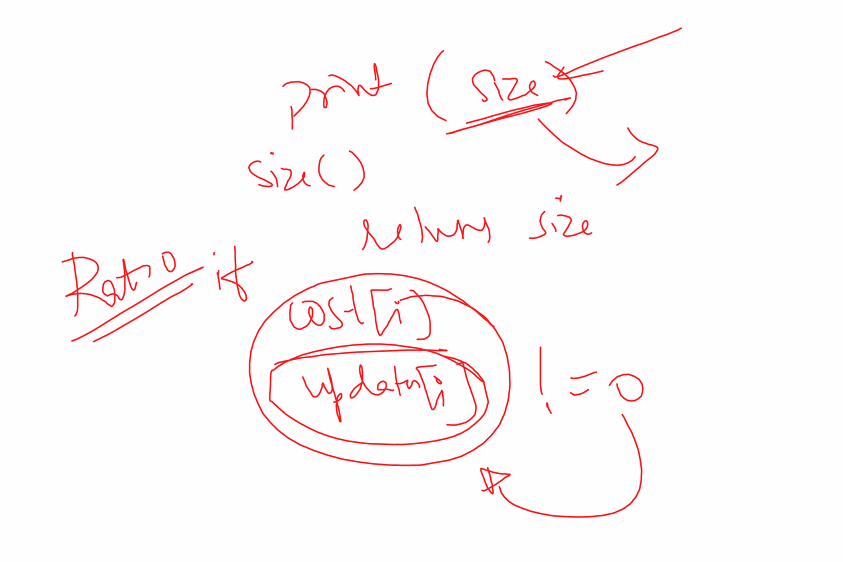 print (size)
size()
return size
Ratio if
cost[i]
updates[i] != 0